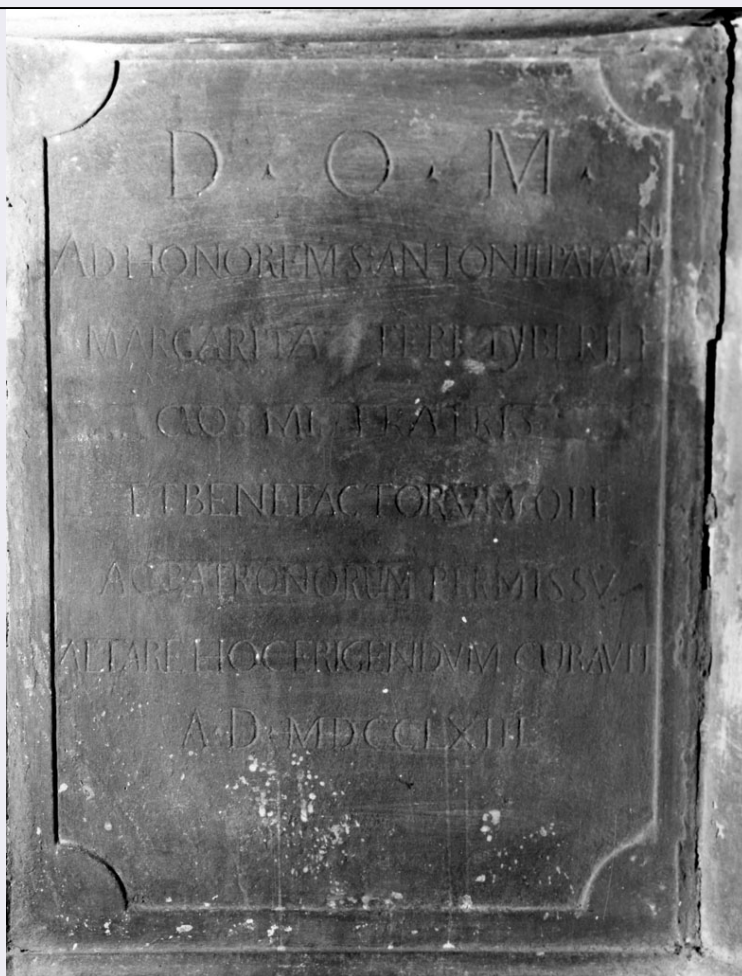 D · O · M ·
AD HONOREM S: ANTONII PATAVINI
MARGARITA
COSMI FRATRIS
ET BENEFACTORVM OPE
AC PATRONORUM PERMISSV
ALTARE HOC ERIGENDVM CURAVIT
A· D· MDCCLXIII